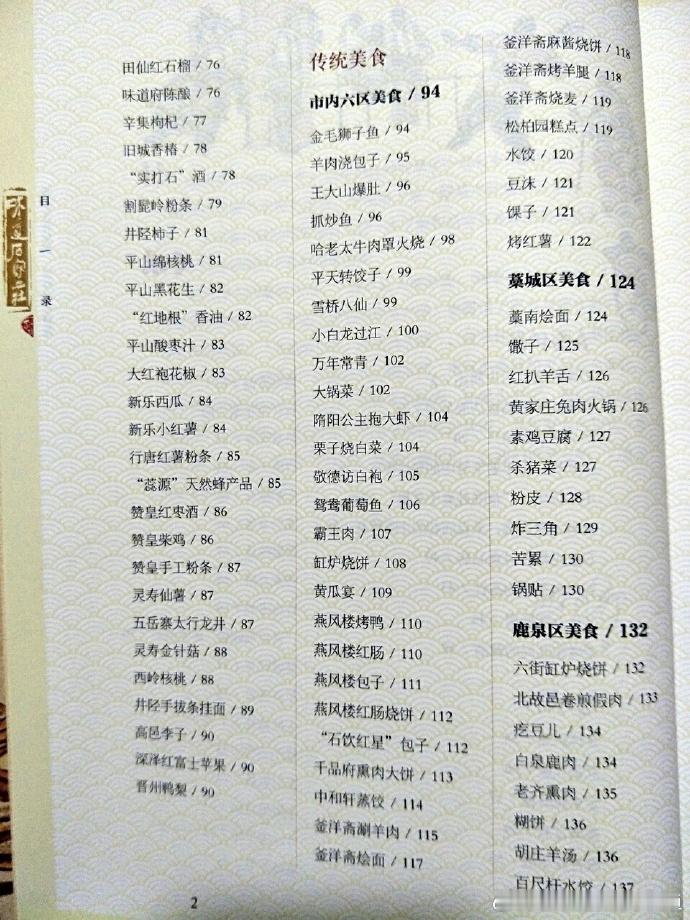 目
录
田仙红石榴 / 76
味道府陈酿 / 76
辛集枸杞 / 77
旧城香椿 / 78
“实打石”酒 / 78
割髭岭粉条 / 79
井陉柿子 / 81
平山绵核桃 / 81
平山黑花生 / 82
“红地根”香油 / 82
平山酸枣汁 / 83
大红袍花椒 / 83
新乐西瓜 / 84
新乐小红薯 / 84
行唐红薯粉条 / 85
“蕊源”天然蜂产品 / 85
赞皇红枣酒 / 86
赞皇柴鸡 / 86
赞皇手工粉条 / 87
灵寿仙薯 / 87
五岳寨太行龙井 / 87
灵寿金针菇 / 88
西岭核桃 / 88
井陉手拔条挂面 / 89
高邑李子 / 90
深泽红富士苹果 / 90
晋州鸭梨 / 90
2
传统美食
市内六区美食 / 94
金毛狮子鱼 / 94
羊肉浇包子 / 95
王大山爆肚 / 96
抓炒鱼 / 96
哈老太牛肉罩火烧 / 98
平天转饺子 / 99
雪桥八仙 / 99
小白龙过江 / 100
万年常青 / 102
大锅菜 / 102
隋阳公主抱大虾 / 104
栗子烧白菜 / 104
敬德访白袍 / 105
鸳鸯葡萄鱼 / 106
霸王肉 / 107
缸炉烧饼 / 108
黄瓜宴 / 109
燕风楼烤鸭 / 110
燕风楼红肠 / 110
燕风楼包子 / 111
燕风楼红肠烧饼 / 112
“石饮红星”包子 / 112
千品府熏肉大饼 / 113
中和轩蒸饺 / 114
釜洋斋涮羊肉 / 115
釜洋斋烩面 / 117
釜洋斋麻酱烧饼 / 118
釜洋斋烤羊腿 / 118
釜洋斋烧麦 / 119
松柏园糕点 / 119
水饺 / 120
豆沫 / 121
馃子 / 121
烤红薯 / 122
藁城区美食 / 124
藁南烩面 / 124
馓子 / 125
红扒羊舌 / 126
黄家庄兔肉火锅 / 126
素鸡豆腐 / 127
杀猪菜 / 127
粉皮 / 128
炸三角 / 129
苦累 / 130
锅贴 / 130
鹿泉区美食 / 132
六街缸炉烧饼 / 132
北故邑卷煎假肉 / 133
疙豆儿 / 134
白泉鹿肉 / 134
老齐熏肉 / 135
糊饼 / 136
胡庄羊汤 / 136
百尺杆水饺 / 137